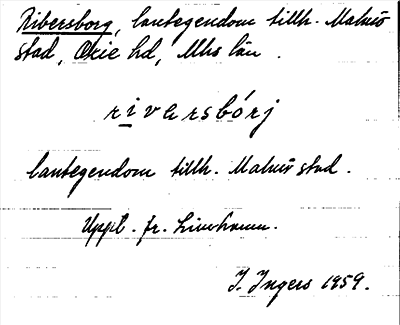 Ribersborg, lantegendom tillh. Malmö
stad, Oxie hd, Mhs län.
rivərsbórj
lantegendom tillh. Malmö stad.
Uppl. fr. Limhamn.
I. Ingers 1959.